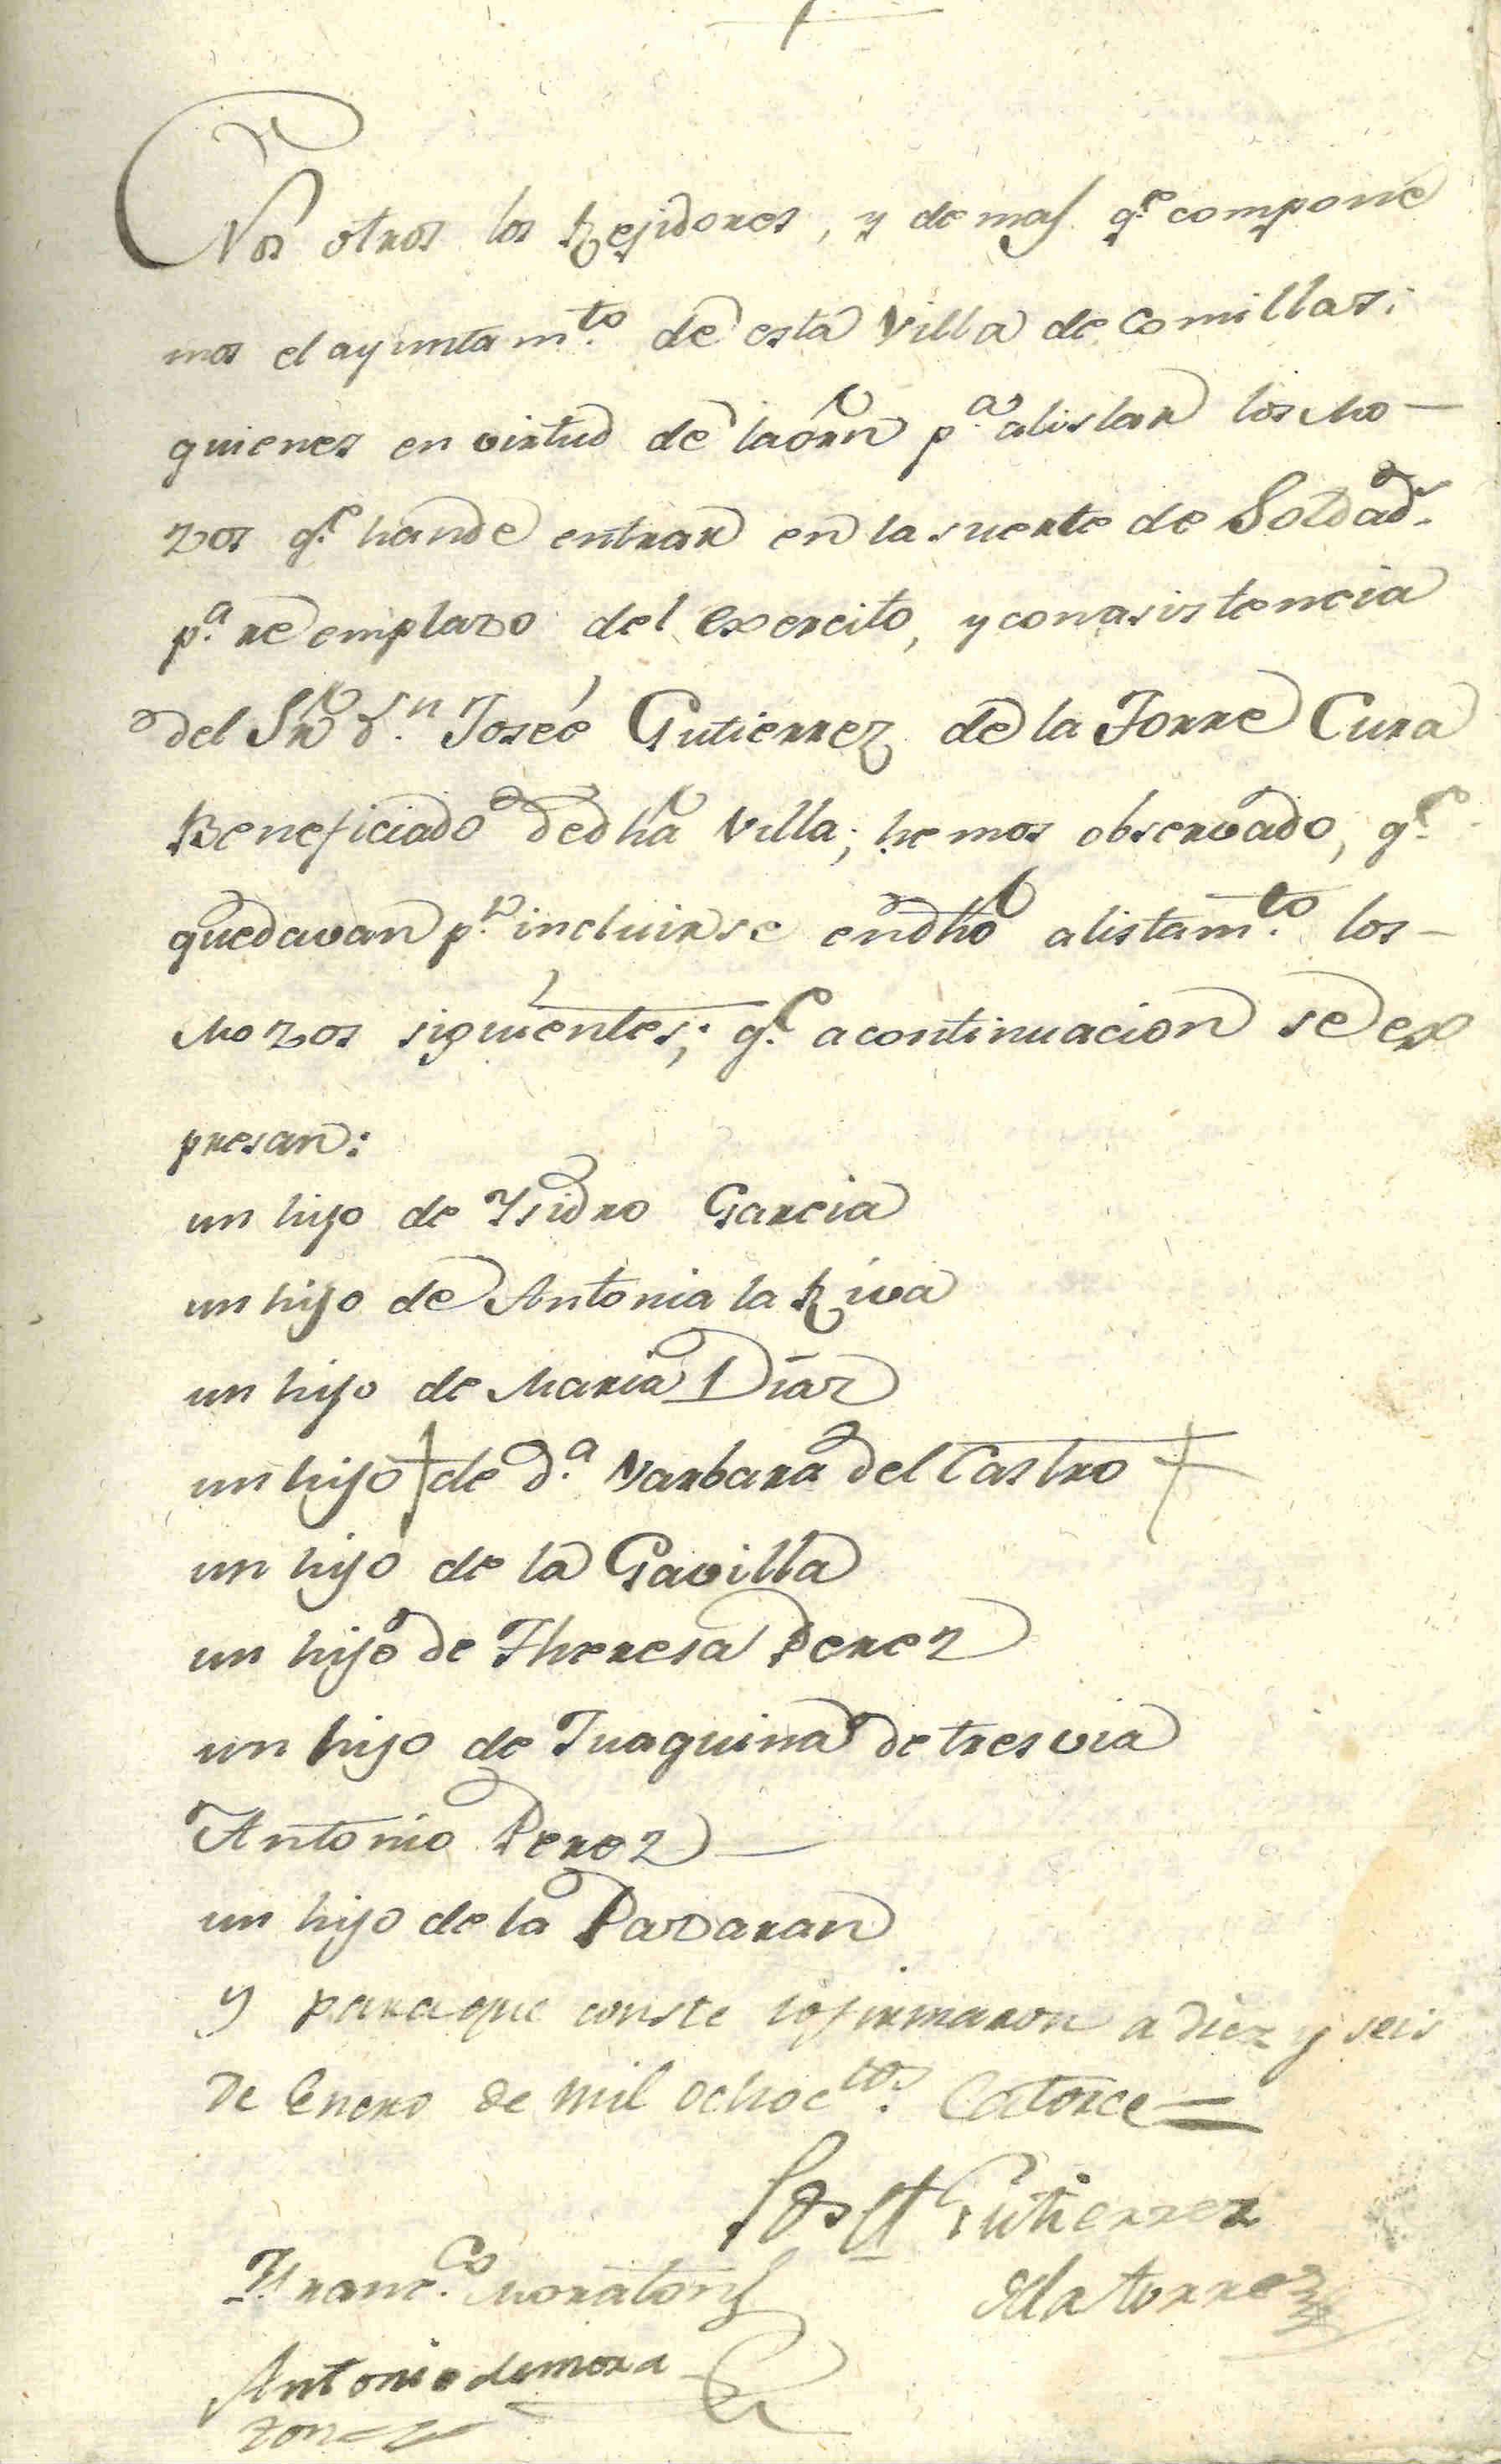 Nos otros los Rejidores, y de mas q.e compone
mos el ayuntam.to de esta Villa de Comillas;
quienes en virtud de la orn p.a alistar los Mo-
zos q.e hande entrar en la suerte de Soldad.s
p.a re emplazo del exercito, y con asistencia
del Sr d.n Joseé Gutierrez de la Torre Cura
Beneficiado dedha Villa; hemos observado, q.e
quedavan p.a incluirse endho alistam.to los-
Mozos siguientes; q.e acontinuacion se ex
presan:
un hijo de Ysidro Garcia
un hijo de Antonia la Riva
un hijo de Maria Diaz
un hijo + de d.a Varbara del Castro +
un hijo de la Gavilla
un hijo de Theresa Perez
un hijo de Juaquina de tresvia
Antonio Perez —
un hijo de la Pazaran
y para que conste lo firmaron a diez y seis
de Enero de mil ochoc.tos Catorce =
Josef Gutierrez
dela torre
Franc.co Moraton
Antonio de mora
ton